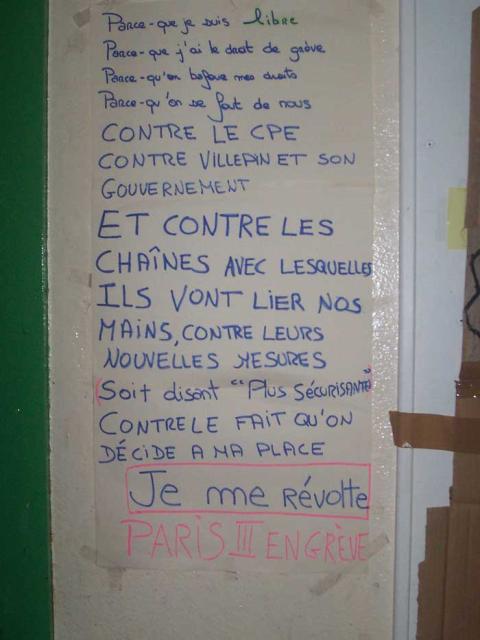 Parce-que je suis libre
Parce-que j'ai le droit de grève
Parce-qu'on bafoue mes droits
Parce-qu'on se fout de nous
CONTRE LE CPE
CONTRE VILLEPIN ET SON
GOUVERNEMENT
ET CONTRE LES
CHAÎNES AVEC LESQUELLES
ILS VONT LIER NOS
MAINS, CONTRE LEURS
NOUVELLES MESURES
(Soit disant "PLUS SÉCURISANTE"
CONTRE LE FAIT QU'ON
DÉCIDE A MA PLACE
Je me révolte
PARIS III EN GRÈVE